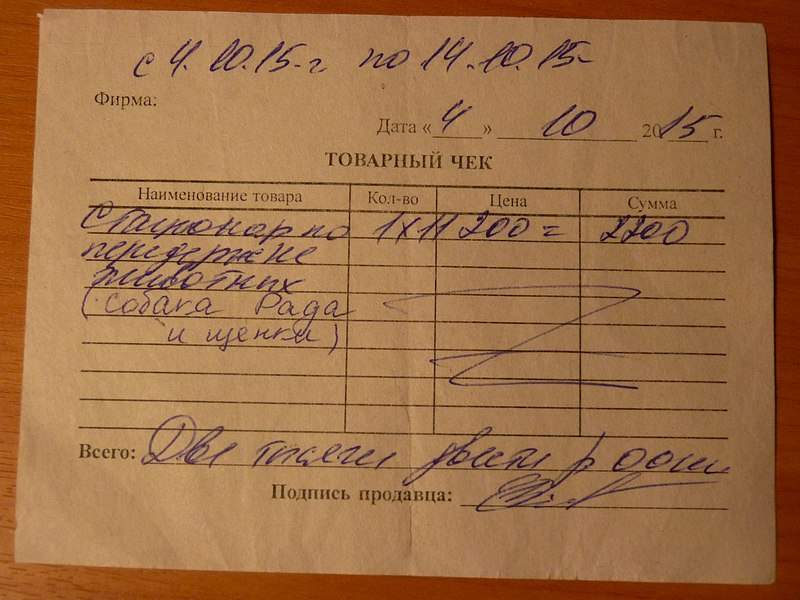 с 4.10.15-г. по 14.10.15-
Фирма:
Дата «4» 10 2015 г.
ТОВАРНЫЙ ЧЕК
Наименование товара Кол-во Цена Сумма
Стационар по 1х11 200= 2200
передержке
животных
(собака Рада
и щенки)
Всего: Две тысячи двести р оо коп
Подпись продавца: